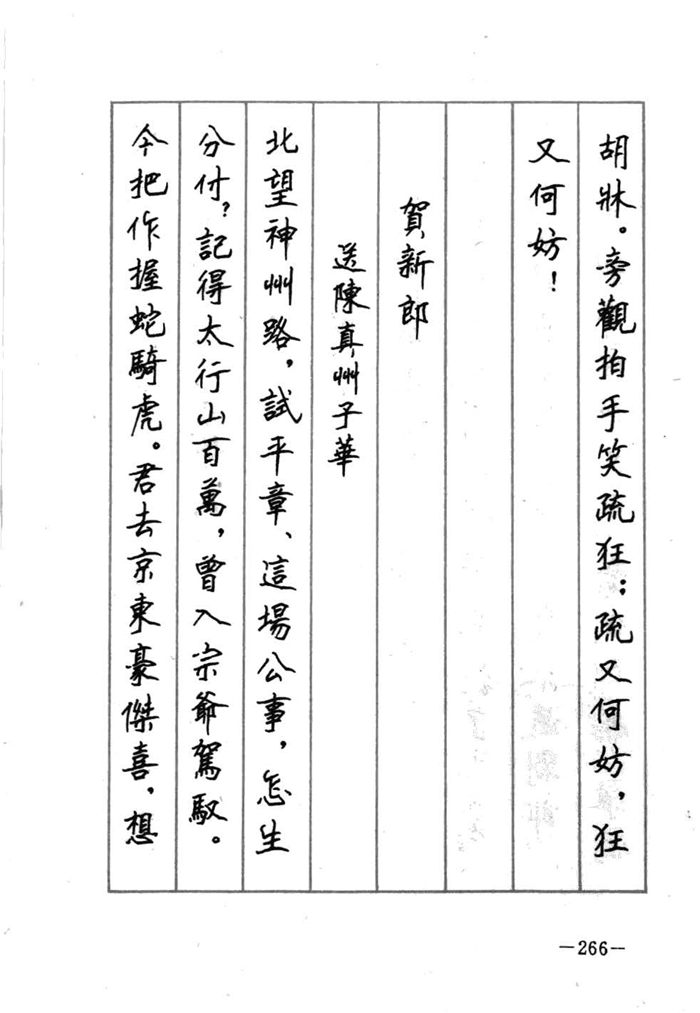 胡牀。旁觀拍手笑疏狂；疏又何妨，狂
又何妨！
賀新郎
送陳真州子華
北望神州路，試平章、這場公事，怎生
分付？記得太行山百萬，曾入宗爺駕馭。
今把作握蛇騎虎。君去京東豪傑喜，想
—266—